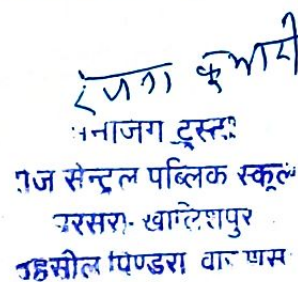 रंजना कुमारी
नाजग ट्रस्ट
ज सेन्ट्रल पब्लिक स्कूल
रसरा- खालिशपुर
हसील पिण्डरा वा णस